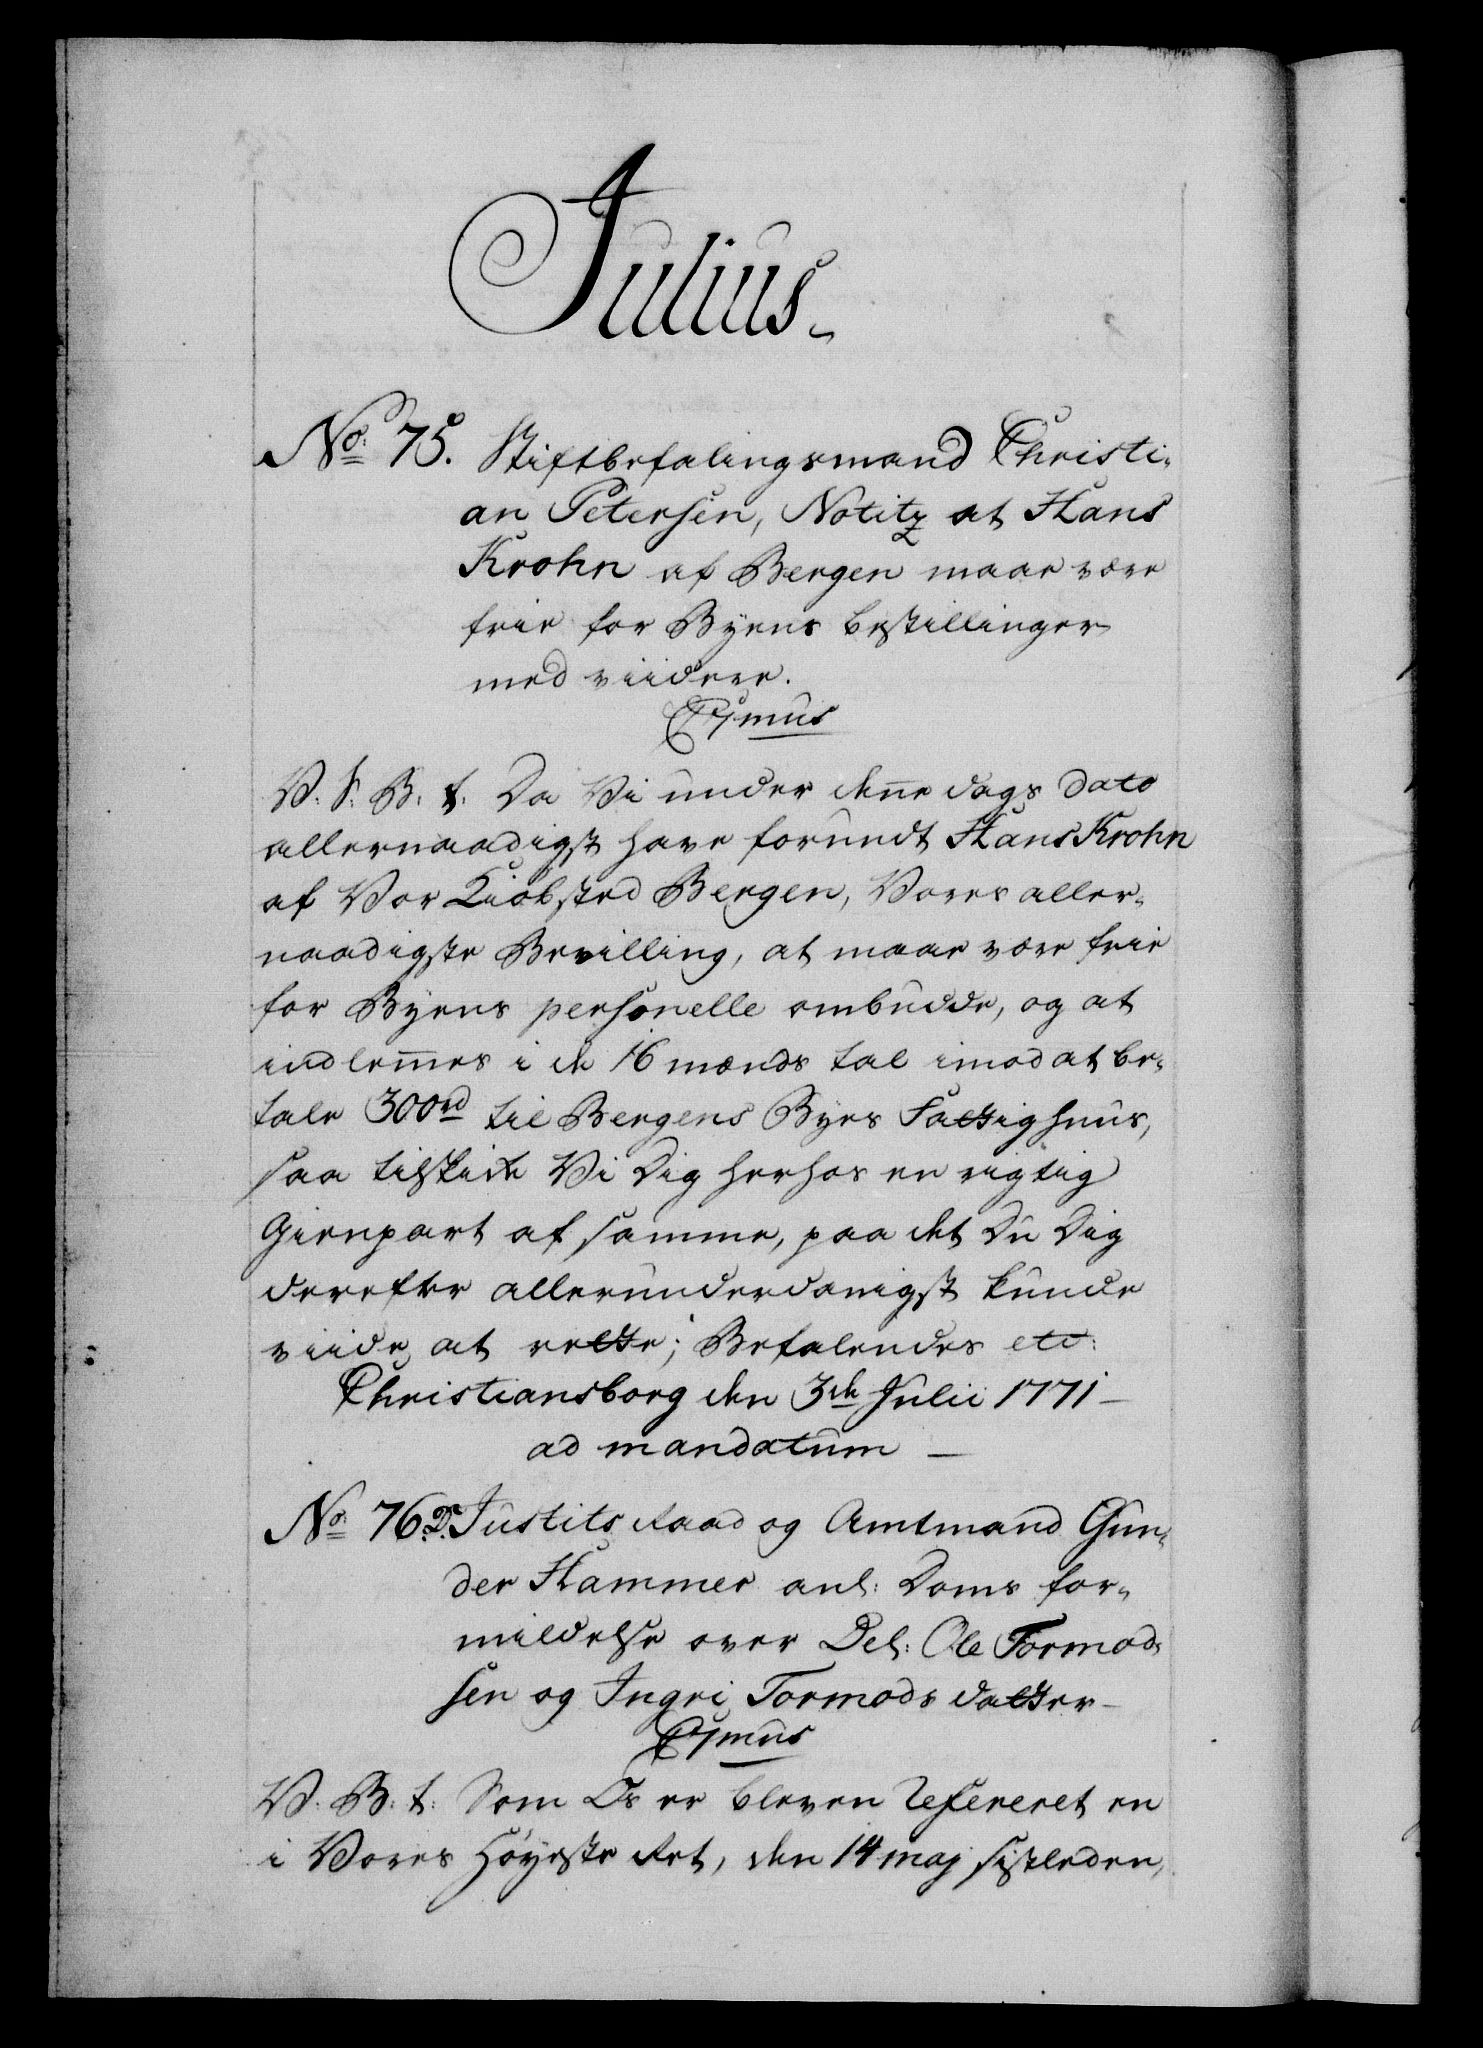 Julius.
No: 75. Stiftbefalingsmand Christi-
an Petersen, Notitz at Hans
Krohn af Bergen maae være
frie for Byens bestillinger
med viidere.
C7mus
V. S: B. t. Da Vi under den̄e dags dato
allernaadigst have forundt Hans Krohn
af Vor Kiøbsted Bergen, Vores aller-
naadigste Bevilling, at maae være frie
for Byens personelle ombudde, og at
indlem̄es i de 16 mænds tal imod at be-
tale 300rd til Bergens Byes Fattighuus,
saa tilskikke Vi Dig herhos en rigtig
Gienpart af samme, paa det Du Dig
derefter allerunderdanigst kunde
viide at rette; Befalendes etc:
Christiansborg den 3de Julii 1771 –
ad mandatum –
No: 76. D. Justits Raad og Amtmand Gun-
der Hammer anl: Doms for-
mildelse over Del: Ole Tormod-
sen og Ingri Tormods datter –
C7mus
V. B: t: Som Os er bleven refereret en
i Vores Høyeste Ret, den 14 maj sistleden,